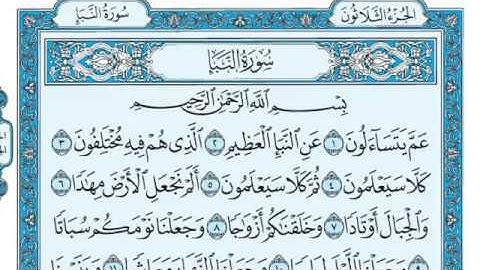 الجزء الثلاثون
سورة النبإ
سورة النبإ
بسم الله الرحمن الرحيم
عَمَّ يَتَسَآءَلُونَ ١ عَنِ ٱلنَّبَإِ ٱلْعَظِيمِ ٢ ٱلَّذِى هُمْ فِيهِ مُخْتَلِفُونَ ٣
كَلَّا سَيَعْلَمُونَ ٤ ثُمَّ كَلَّا سَيَعْلَمُونَ ٥ أَلَمْ نَجْعَلِ ٱلْأَرْضَ مِهَٰدًا ٦
وَٱلْجِبَالَ أَوْتَادًا ٧ وَخَلَقْنَٰكُمْ أَزْوَٰجًا ٨ وَجَعَلْنَا نَوْمَكُمْ سُبَاتًا